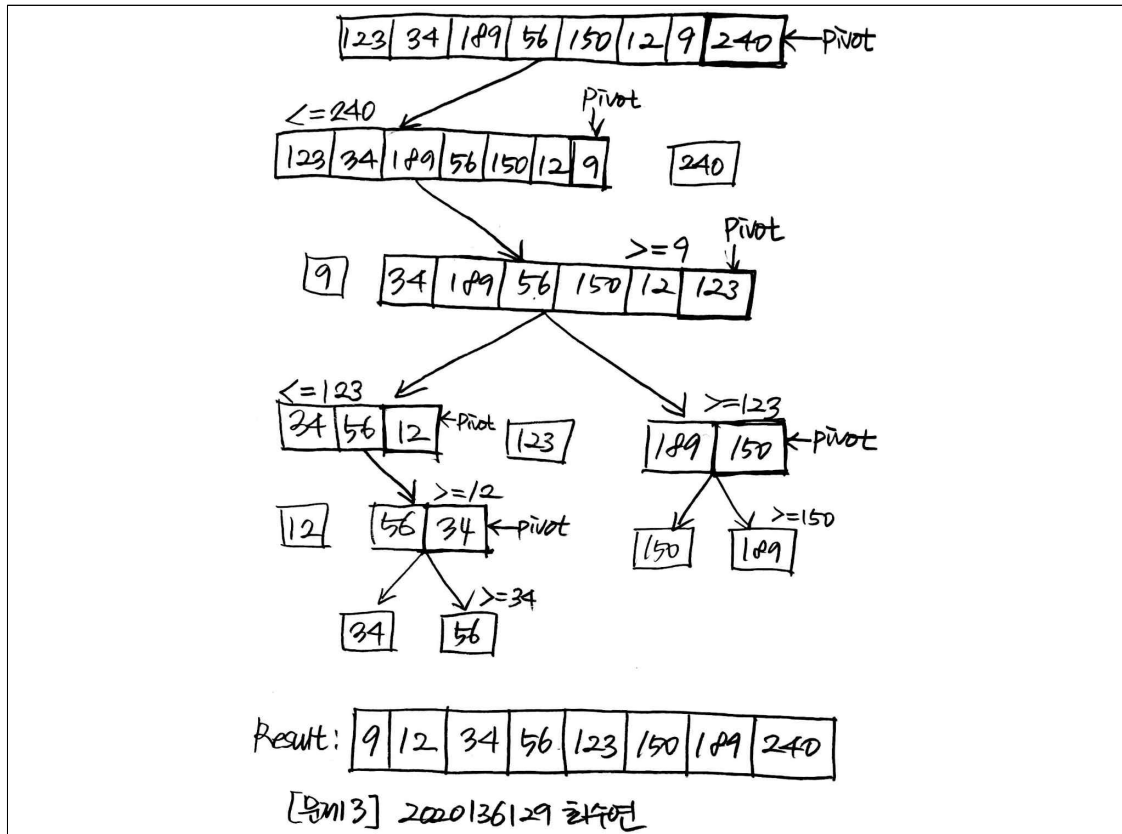 123 34 189 56 150 12 9 240 ← pivot
<=240 pivot
123 34 189 56 150 12 9 240
>=9 pivot
9 34 189 56 150 12 123
<=123 >=123
34 56 12 ← pivot 123 189 150 ← pivot
>=12 >=150
12 56 34 ← pivot 150 189
>=34
34 56
Result: 9 12 34 56 123 150 189 240
[문제3] 2020136129 최수연